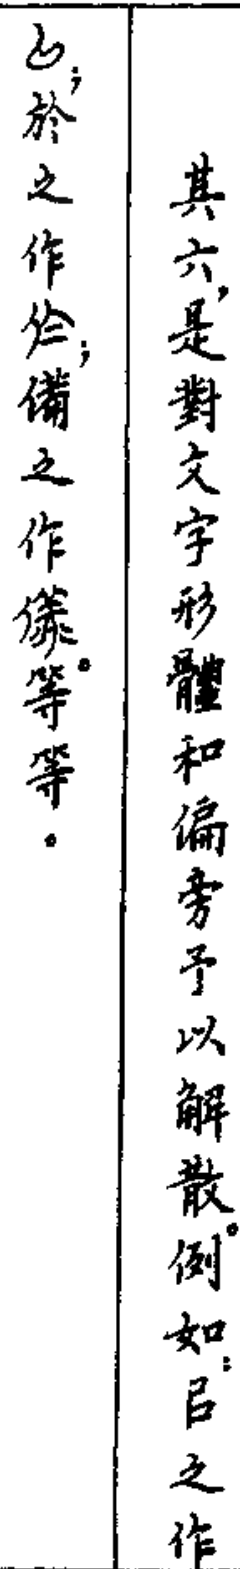 其六,是對文字形體和偏旁予以解散。例如:㠯之作
,於之作;備之作。等等。